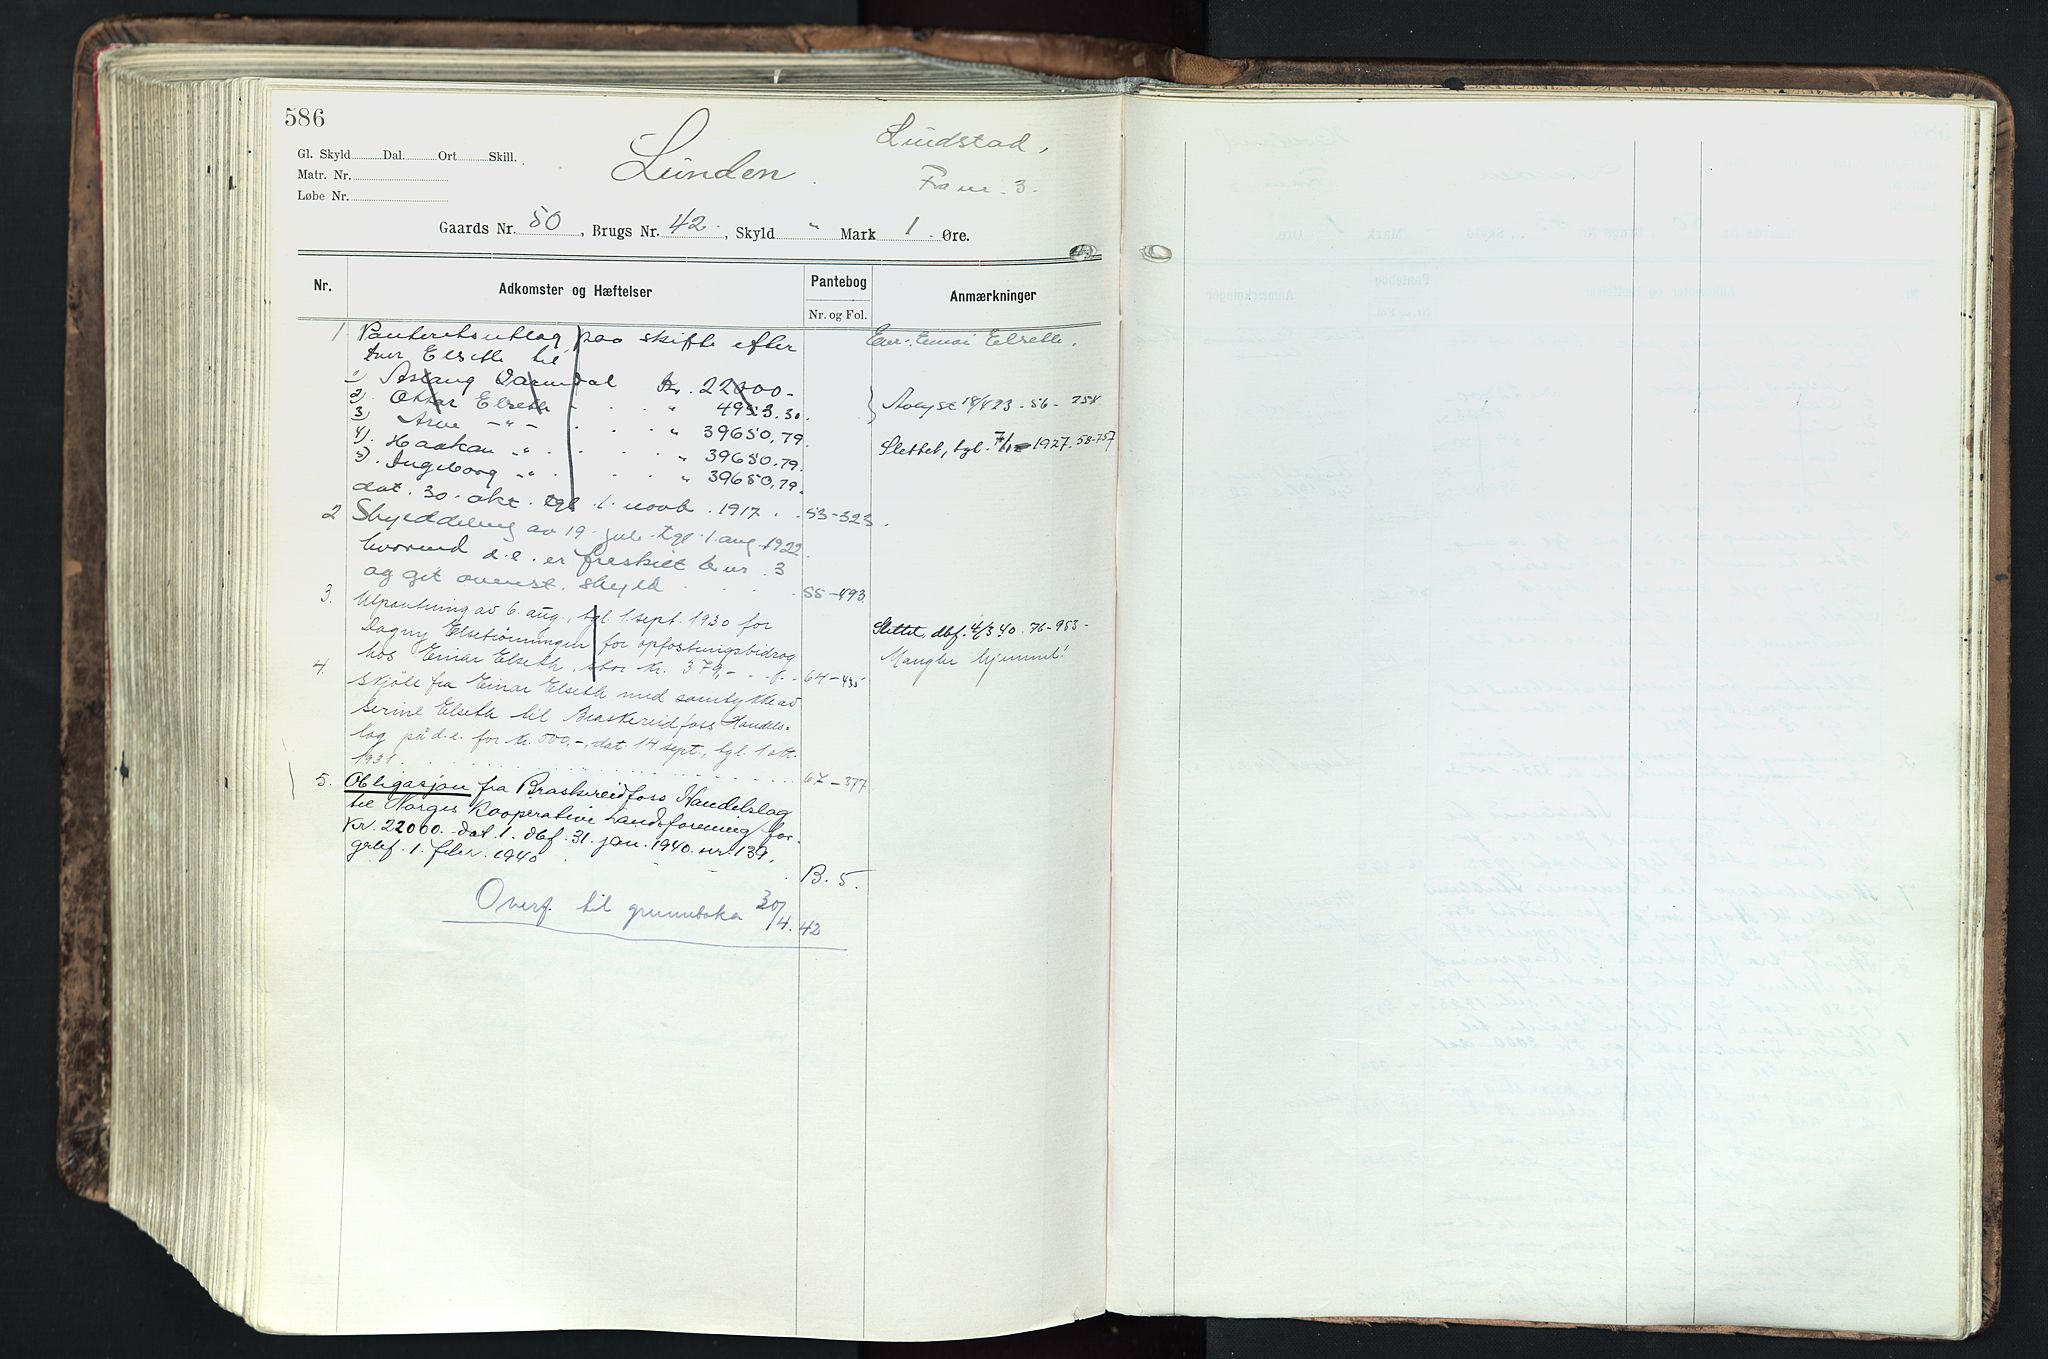 586
Lunden.
Lindstad,
Fra nr. 3.
Gl. Skyld Dal. Ort Skill.
Matr. Nr.
Løbe Nr.
Gaards Nr. 50, Brugs Nr. 42., Skyld " Mark 1. Øre.
Nr.
Adkomster og Hæftelser
Pantebog
Nr. og Fol.
Anmærkninger
1 Panteretsutlæg paa skifte efter
Iver Elseth til
1) Aslaug Kr. 22000-
2) Ottar Elseth - . . . " 4953.30.
3) Arne - " - . . . " 39650,79.
4). Haakon " . . . . " 39650.79.
5). Ingeborg " . . . . " 39650,79.
dat. 30. okt. tgl. 1. novb. 1917. . 53-323.
Eier: Einar Elseth.
Avlyst 18/4 23 - 56 - 758
Slettet, tgl. 1927. 58-757
2 Skylddeling av 19. juli tgl. 1. aug. 1922
hvorved d.e. er fraskilt br nr. 3
og git ovenst. skyld . . . . 55-493.
3. Utpantning av 6. aug., tgl. 1. sept. 1930 for
Dagny for opfostringsbidrag
hos Einar Elseth, stor kr. 379,- . . . 64-435
Slettet, dbf. 4/3 40. 76-953-
Mangler hjemmel!
4. Skjøte fra Einar Elseth med samtykke av
Serine Elseth til Braskereidfoss Handels-
lag på d.e. for kr. 500,-, dat. 14 sept., tgl. 1 okt.
1931. . . . . . . . . 67-377
5. Obligasjon fra Braskereidfoss Handelslag
til Norges Kooperative Landsforening for
kr. 22000.- dat. 1. dbf. 31. jan. 1940. nr. 139.
1. febr. 1940 . . . . B. 5.
Overf. til grunnboka 30/4. 42